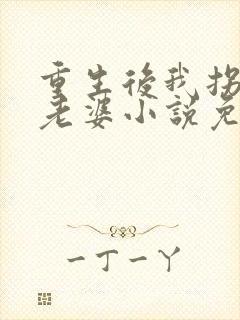 重生後我拐
老婆小說免
一丁一丫